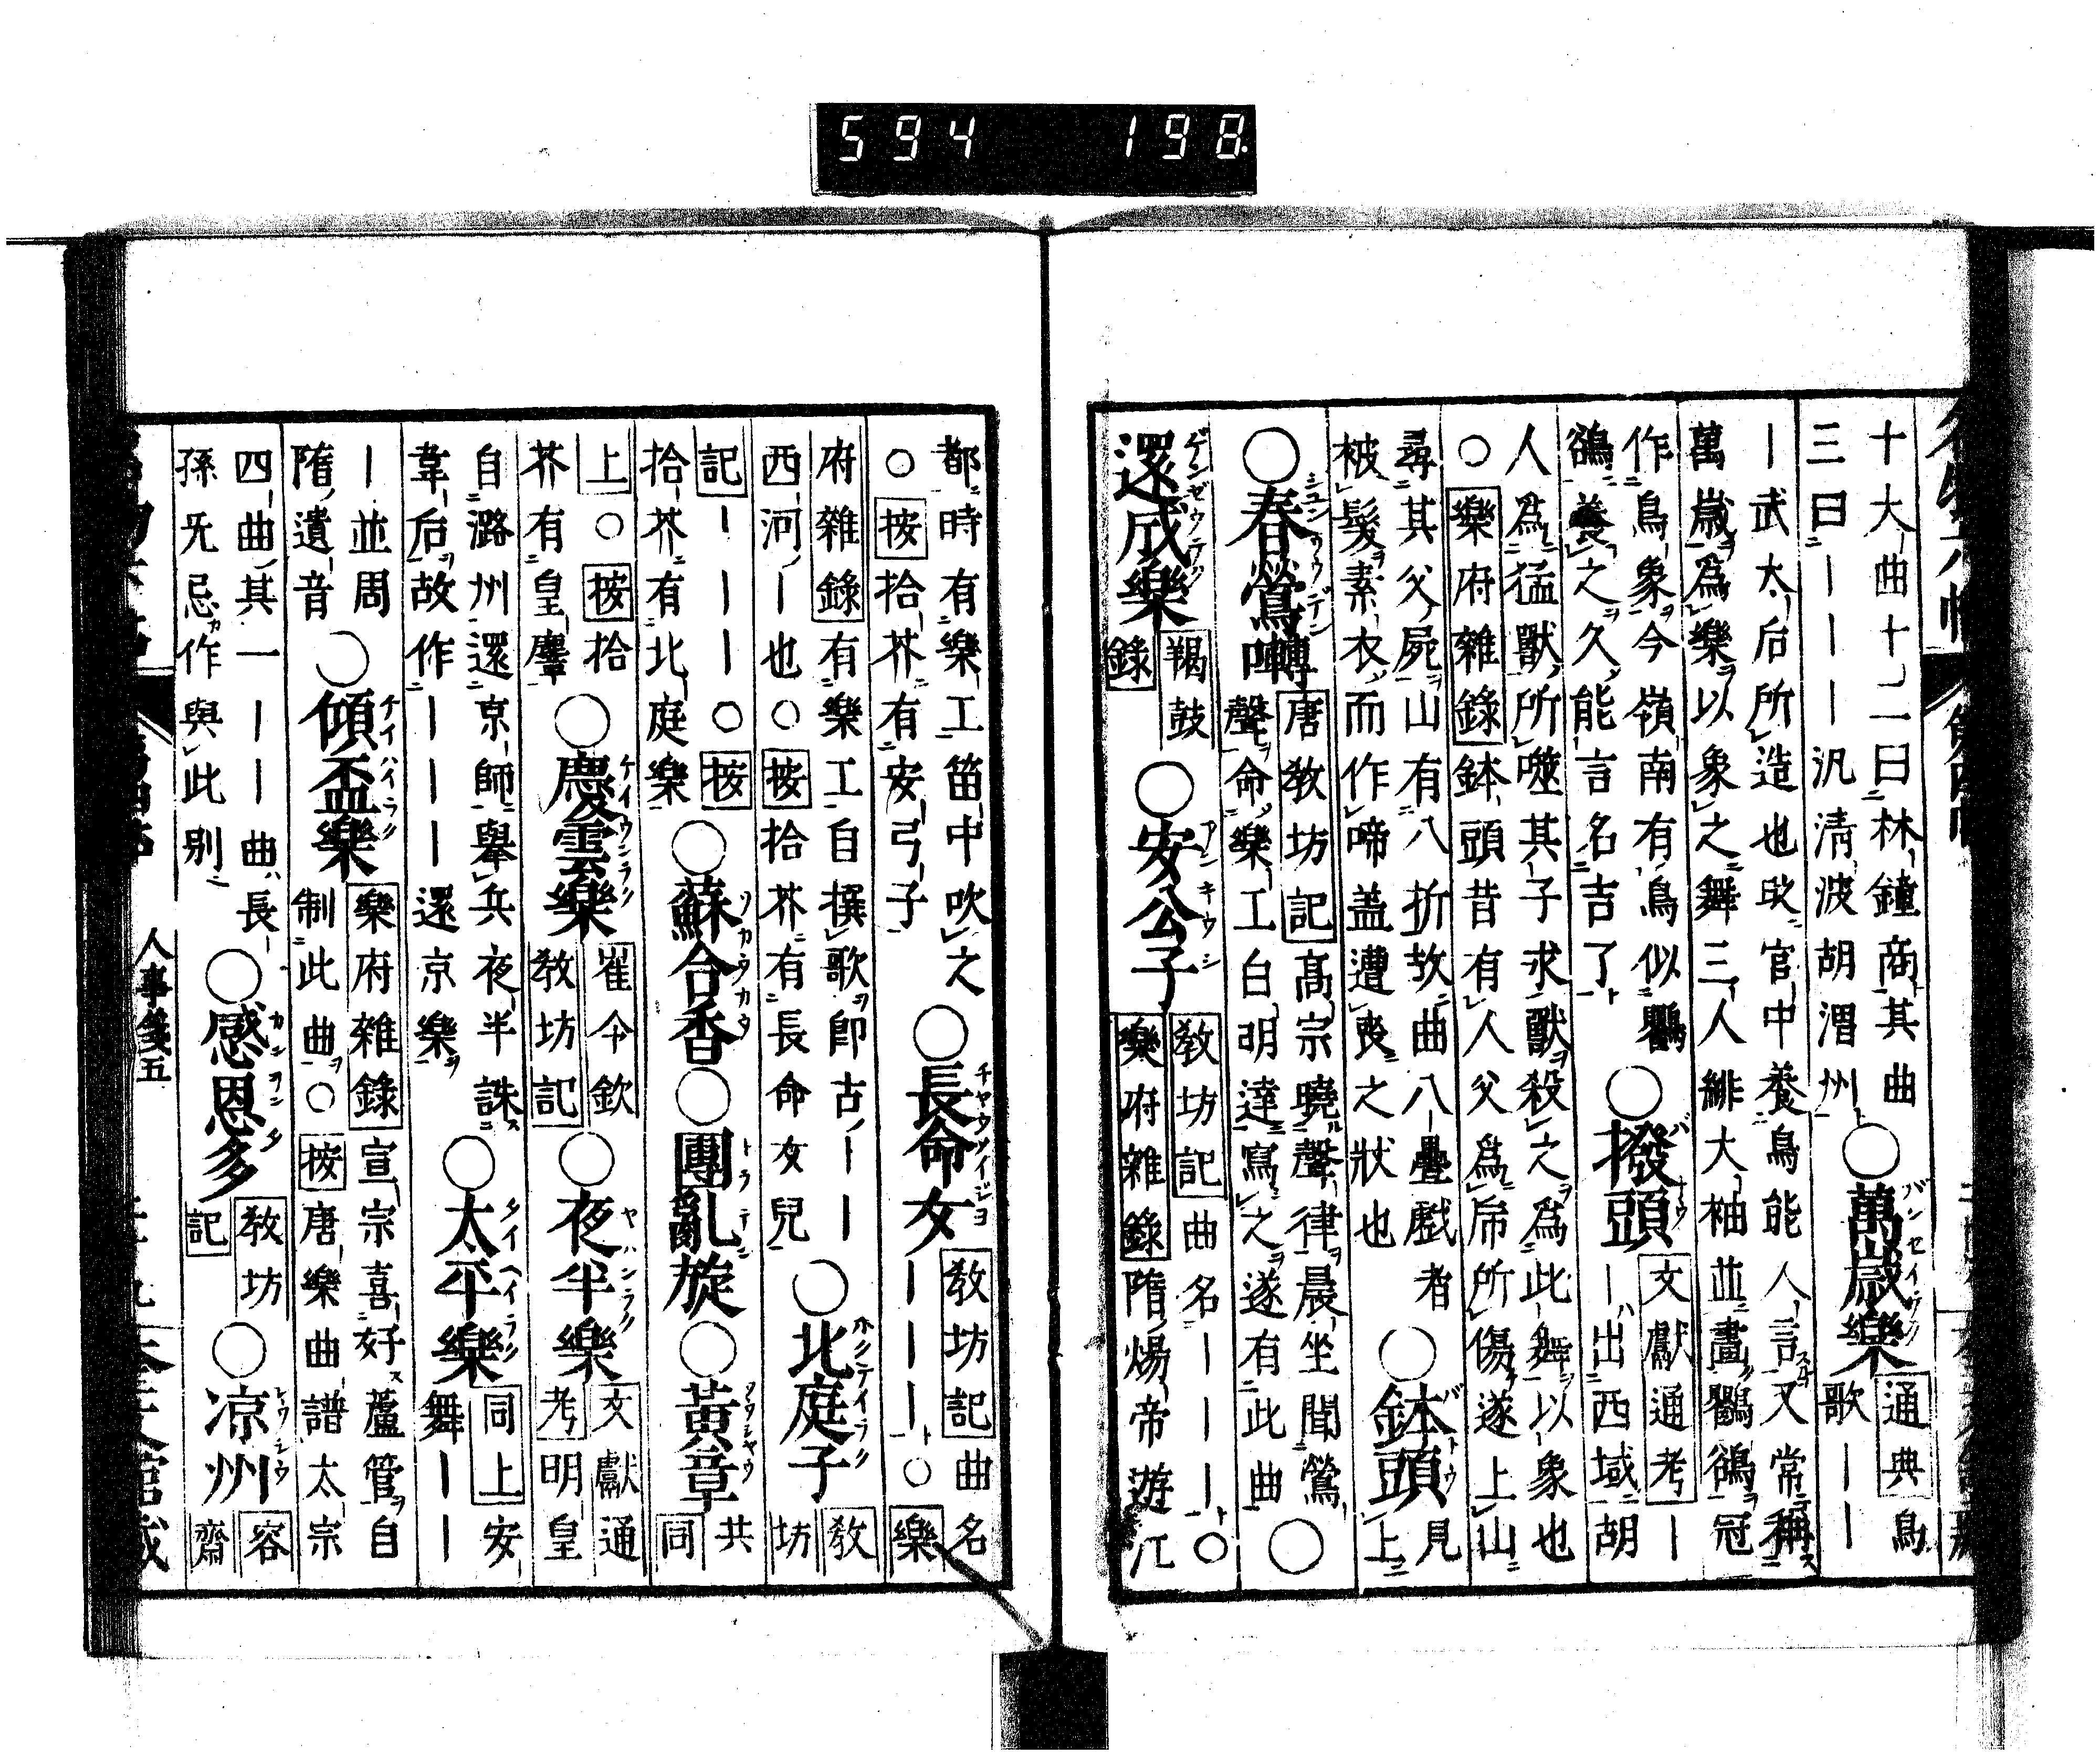 594 198
十大曲十二曰林鐘商其曲
三曰ーーーー汎清波胡渭州
○萬歲樂
通典鳥
歌ーー
ー武太后所造也時官中養鳥能人言又常稱
萬歲爲樂以象之舞三人緋大袖並畫鸜鵒冠
作鳥象今嶺南有鳥似鸜
鵒養之久能言名吉了
○撥頭
文獻通考ー
ー出西域胡
人爲猛獸所噬其子求獸殺之爲此舞以象也
○樂府雜錄鉢頭昔有人父爲乕所傷遂上山
尋其父屍山有八折故曲八疊戲者
被髮素衣而作啼盖遭喪之狀也
○鉢頭
見
上
○春鶯囀
唐教坊記高宗曉聲律晨坐聞鶯
聲命樂工白明達寫之遂有此曲
○
還成樂
羯鼓
錄
○安公子
教坊記曲名ーーー○
樂府雜錄隋煬帝遊江
都時有樂工笛中吹之
○按拾芥有安弓子
○長命女
教坊記曲名
ーーー○樂
府雜錄有樂工自撰歌卽古ーー
西河ー也○按拾芥有長命女兒
○北庭子
教
坊
記ーーー○按
拾芥有北庭樂
○蘇合香
○團亂旋
○黃章
共
同
上○按拾
芥有皇麞
○慶雲樂
崔令欽
教坊記
○夜半樂
文獻通
考明皇
自潞州還京師舉兵夜半誅
韋后故作ーーー還京樂
○太平樂
同上安
舞ーー
ー並周
隋遺音
○傾盃樂
樂府雜錄宣宗喜好蘆管自
制此曲○按唐樂曲譜太宗
四曲其一ーー曲長
孫旡忌作與此別
○感恩多
教坊
記
○凉州
容
齋
人事箋五